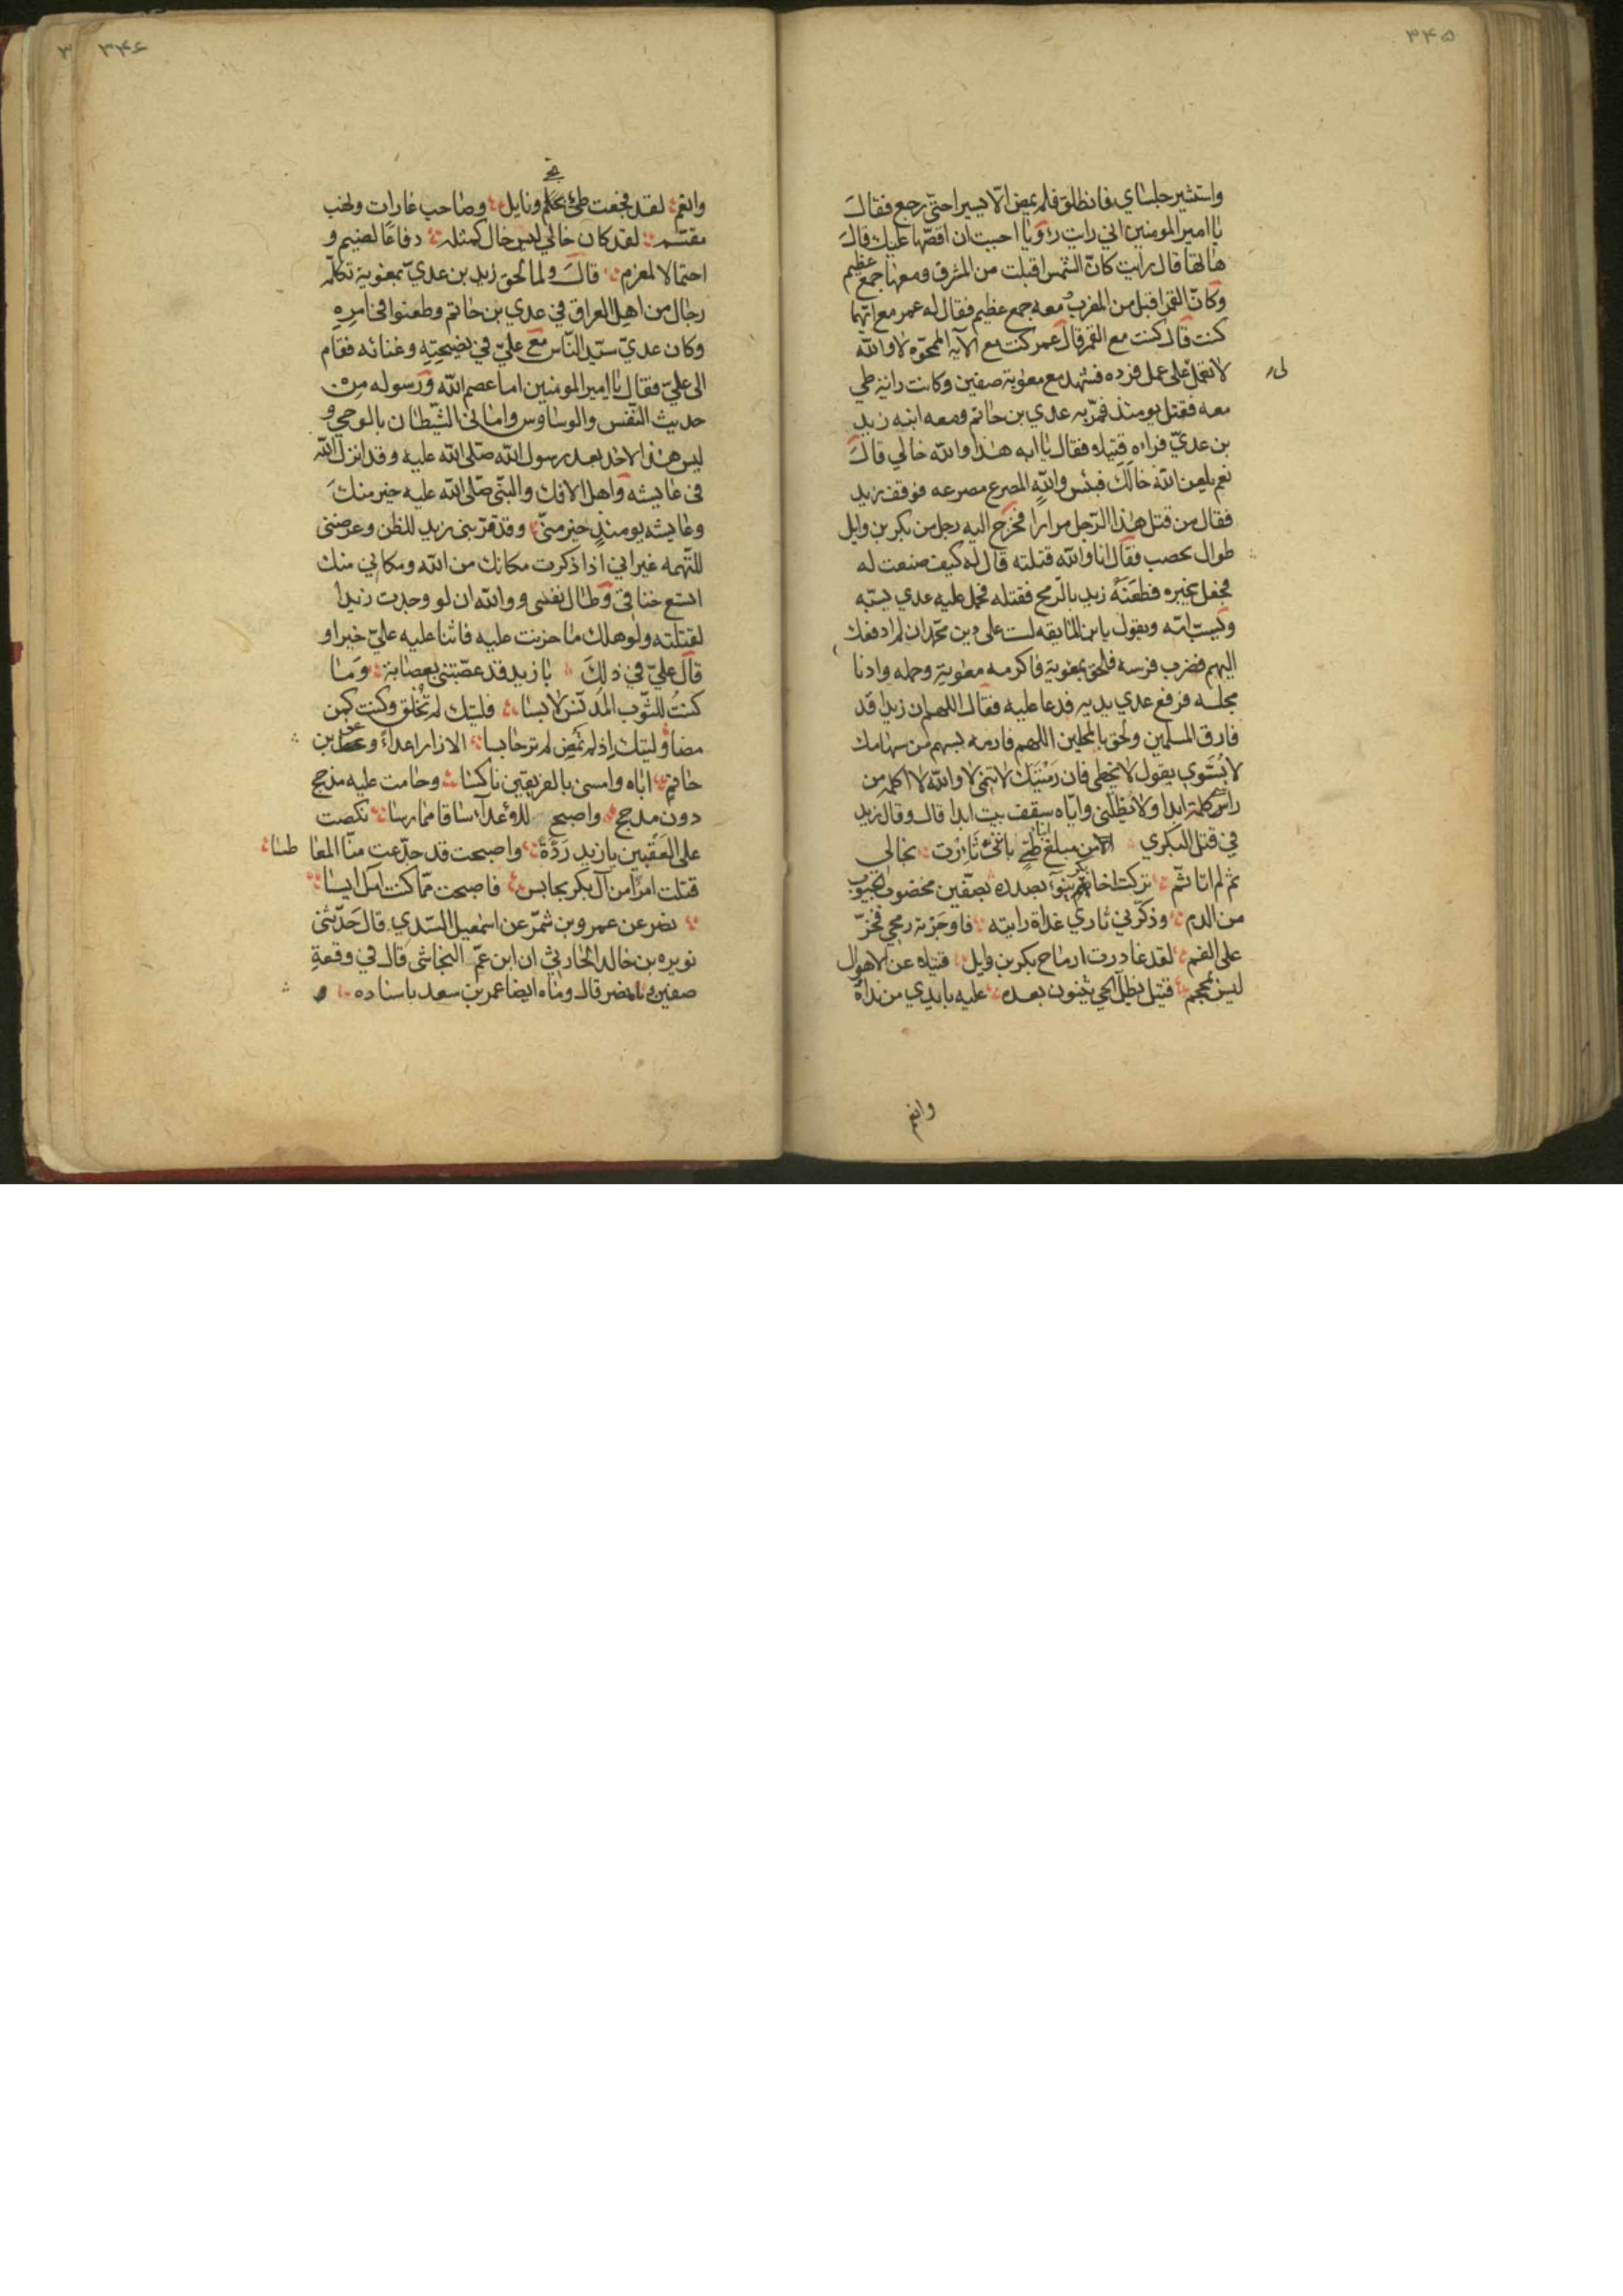 ۳۴۵
واستشير جلساي فانطلق فلم يمض الا يسيرا حتى رجع فقال
يا امير المومنين اني رايت رؤيا احببت ان اقصها عليك قال
هاتها قال رايت كانّ الشمس اقبلت من المشرق ومعها جمع عظيم
وكانّ القمر اقبل من المغرب معه جمع عظيم فقال له عمر مع ايهما
كنت قال كنت مع القمر قال عمر كنت مع الآية الممحوّه لا والله
لا تعمل لى على عمل فرده فشهد مع معوية صفين وكانت راية طي
معه فقتل يومئذ فمرّ به عدي بن حاتم ومعه ابنه زيد
بن عديّ فراه قتيلا فقال يا ابه هذا والله خالي قال
نعم لعن الله خالك فبئس والله المصرع مصرعه فوقف زيد
فقال من قتل هذا الرّجل مرارا فخرج اليه رجل من بكر بن وايل
طوال يخضب فقال انا والله قتلته قال له كيف صنعت له
فجعل يخبره فطعنه زيد بالرمح فقتله فحمل عليه عدي يسبّه
ويسبّ امّه ويقول يابن المايقه لست على دين محمّد ان لم ادفعك
اليهم فضرب فرسه فلحق بمعوية فاكرمه معوية وحمله وادنا
مجلسه فرفع عدي يديه فدعا عليه فقال اللهم ان زيدا قد
فارق المسلمين ولحق بالمحلين اللهم فارمه بسهم من سهامك
لا يُشوي يقول لا يخطي فان رميتك لا تنمى لا والله لا اكلمه من
راسي كلمة ابدا ولا يظلّني واياه سقف بيت ابدا قال وقال زيد
في قتل البكري الا من مبلغ ابنا طيّ باننى ثارت بخالي
ثم لم اتاثم تركت اخا بكر ينوء بصدره بصفين مخضوب الجيوب
من الدم وذكرني ثاري غداة رايته فاوجرته رمحي فخرّ
على الفم لقد غادرت ارماح بكر بن وايل قتيلا عن الاهوال
ليس بمحجم قتيل يظل الحي يثنون بعده عليه بايدي من نداه
وانعم
۳۴۶
وانعم لقد فجعت طي بحلم ونايل وصاحب غارات ونهب
مقسّم لقد كان خالي ليس خال كمثله دفاعا لضيم و
احتمالا لمغرم قال ولما لحق زيد بن عديّ بمعوية تكلّم
رجال من اهل العراق في عدي بن حاتم وطعنوا في امره
وكان عديّ سيّد النّاس مع عليّ في نصيحته وغنائه فقام
الى عليّ فقال يا امير المومنين اما عصم الله ورسوله من
حديث النّفس والوساوس واماني الشيّطان بالوحي و
ليس هذا لاحد بعد رسول الله صلى الله عليه وقد انزل الله
فى عايشه واهل الافك والنبّى صلى الله عليه خير منك
وعايشه يومئذ خير منىّ وقد قرّبنى زيد للظن وعرضنى
للتّهمه غير اني اذا ذكرت مكانك من الله ومكاني منك
اتسع خناقى وطال نفسى ووالله ان لو وجدت زيدا
لقتلته ولو هلك ما حزنت عليه فاثنا عليه عليّ خيرا و
قال عليّ في ذلك يا زيد قد عصّبتنى بعصابة وما
كنتُ للثّوب المدنّس لابسا فليتك لم تخلق وكنت كمن
مضا وليتك اذ لم تمض لم تر حابسا الا زار اعداء وعق بن
حاتم اباه وامسى بالفريقين ناكسا وحامت عليه مذحج
دون مذحج واصبح للاعداء ساقا ممارسا نكصت
على العقبين يا زيد ردّة واصبحت قد جدّعت منّا المعاطسا
قتلت امرا من آل بكر بجابس فاصبحت ممّا كنت امل ايسا
نصر عن عمرو بن شمّر عن اسمعيل السّدي قال حدّثنى
نويره بن خالد الحارثي ان ابن عمّ النجاشى قال في وقعة
صفين نا نصر قال وناه ايضا عمر بن سعد باسناده